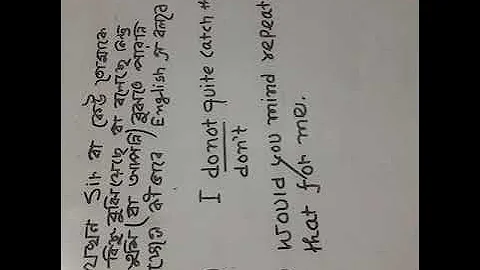 যখন Sir বা কেউ তোমাকে
কিছু বুঝিয়েছে বা বলেছে কিন্তু
তুমি (বা আপনি) বুঝতে পারনি
English এ বলবে
I donot quite catch
don't
would you mind repeat
that for me.